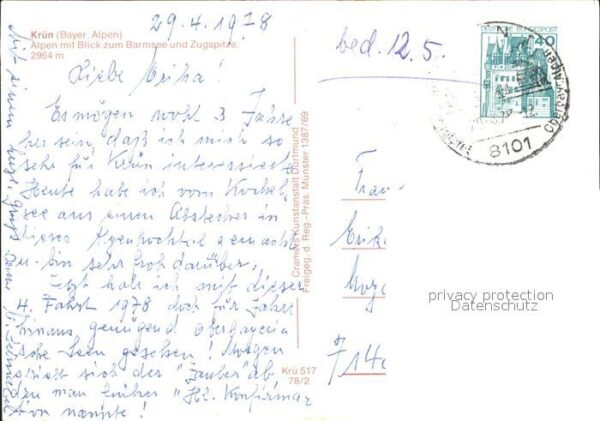 29.4.1978
Krün (Bayer. Alpen)
Alpen mit Blick zum Barmsee und Zugspitze.
2964 m
Liebe Erika!
Es mögen wohl 3 Jahre
her sein, daß ich mich so
sehr für Krün interessierte
Heute habe ich vom Kochel-
see aus einen Abstecher in
dieses gemacht
u. bin sehr froh darüber,
Jetzt hab ich mit dieser
4. Fahrt 1978 doch für Jahre
hinaus, genügend oberbayeri-
sche Seen gesehen! Morgen
spielt sich der "Zauber" ab
den man früher "Hl. Konfirma-
tion nannte!
Mit einem herzl. Gruß
bed. 12.5.
DEUTSCHE BUNDESPOST
40
8101
Frau
Erik
714
Cramers Kunstanstalt Dortmund
Freigeg. d. Reg.-Präs. Münster 1387/69
Krü 517
78/2
privacy protection
Datenschutz